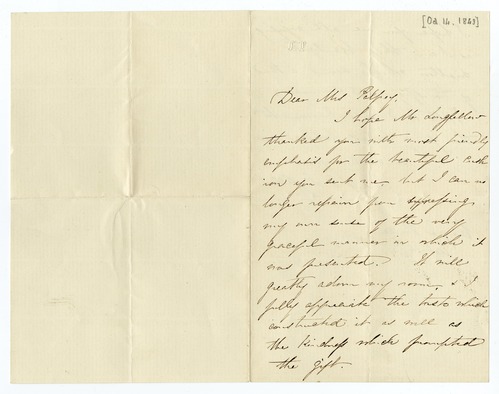 [Oct. 14. 1843]
Dear Mrs Palfrey,
I hope Mr Longfellow
thanked you with most friendly
emphasis for the beautiful cush
ion you sent me, but I can no
longer refrain from expressing,
my own sense of the very
graceful manner in which it
was presented. It will
greatly adorn my room, & I
fully appreciate the taste which
constructed it as well as
the kindness which prompted
the gift.